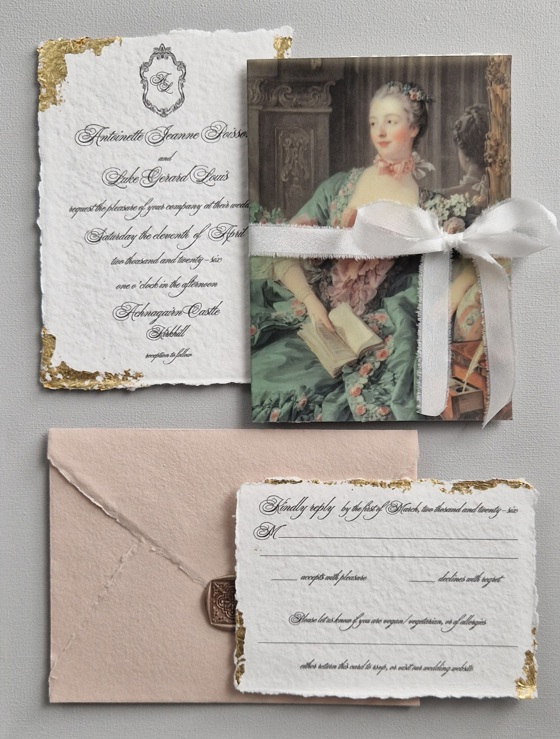 AL
Antoinette Jeanne
and
Luke Gerard Louis
request the pleasure of your company at their
Saturday the eleventh of April
two thousand and twenty-six
one o'clock in the afternoon
Achnagairn Castle
Kirkhill
reception to follow
Kindly reply by the first of March, two thousand and twenty-six
M
accepts with pleasure declines with regret
Please let us know if you are vegan/vegetarian, or of allergies
either return this card to rsvp, or visit our wedding website